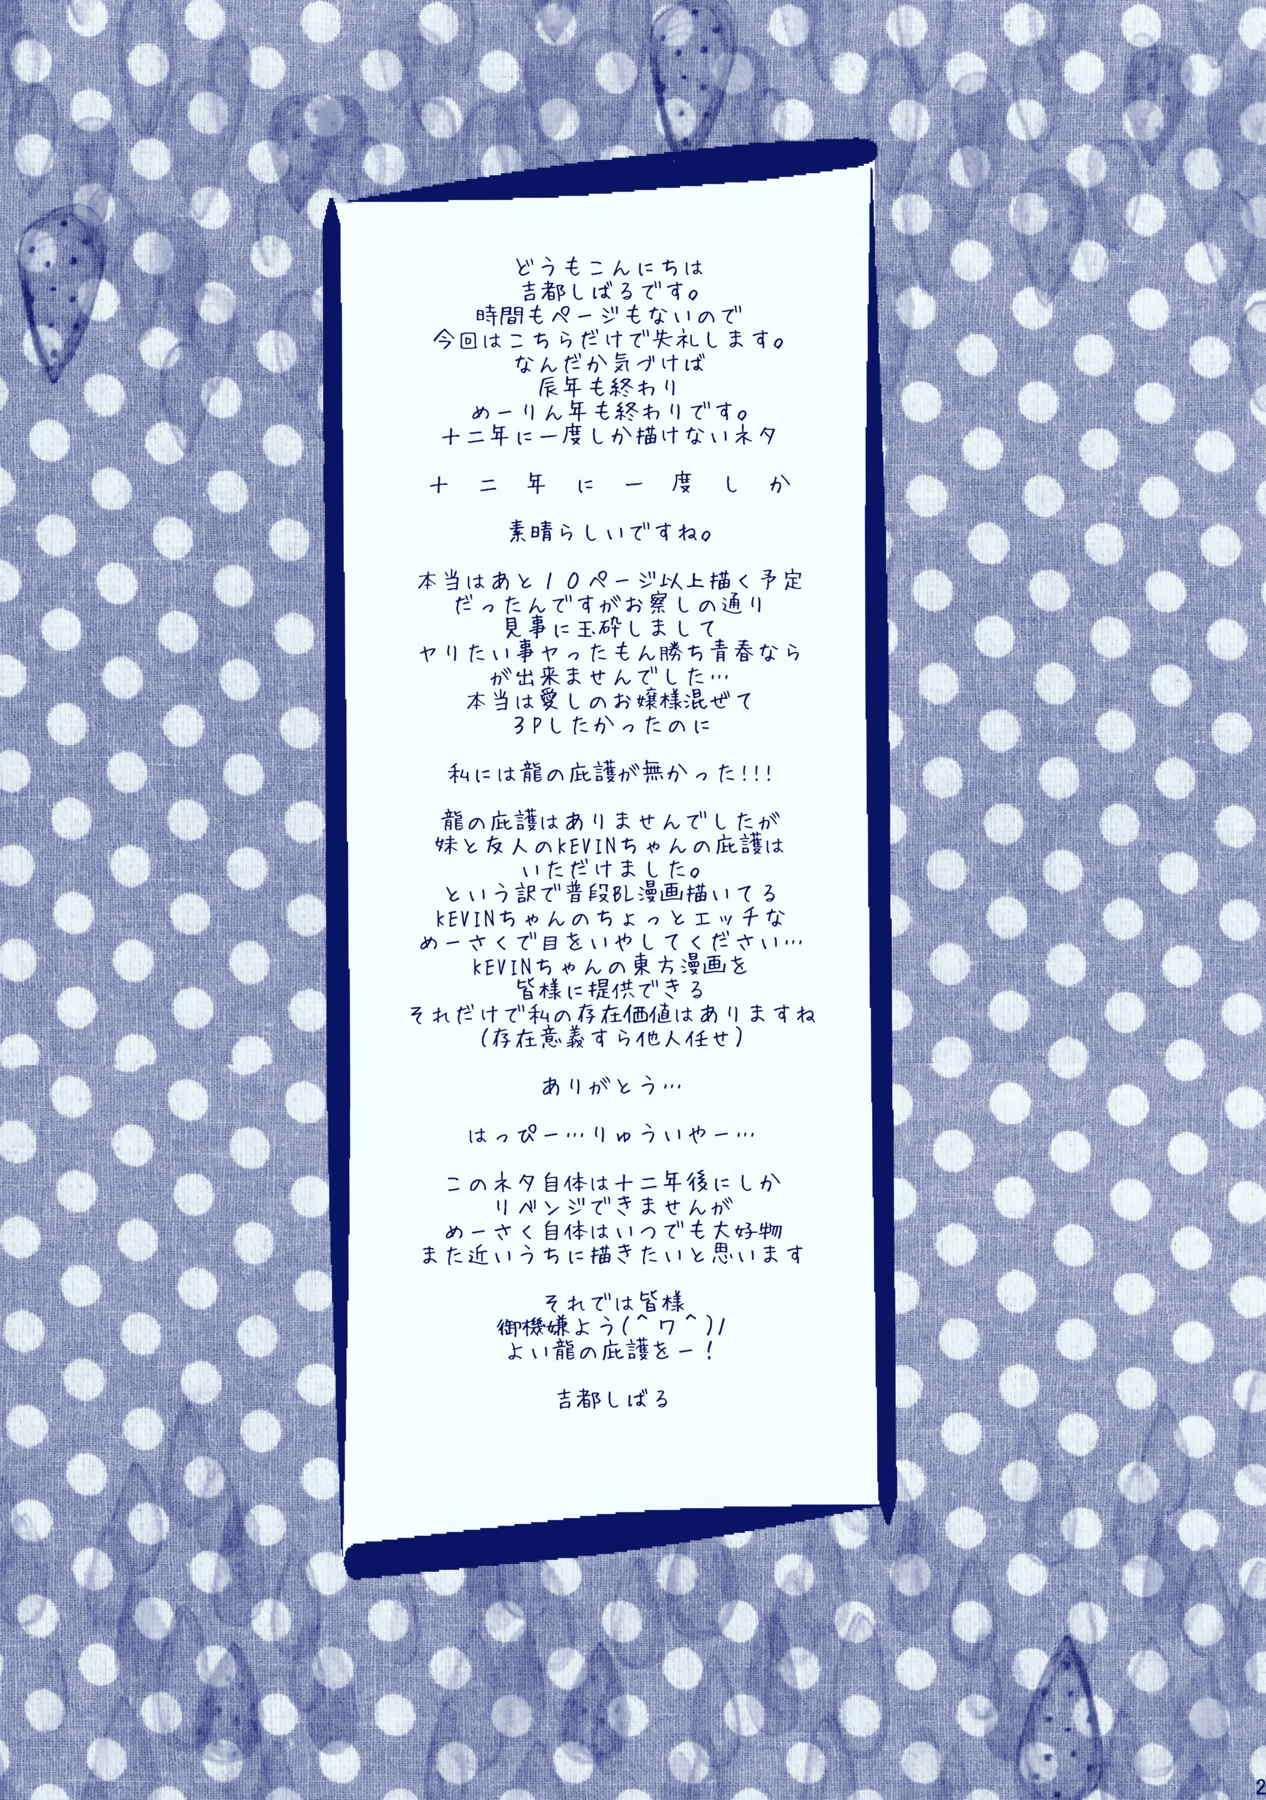 どうもこんにちは
吉都しばるです。
時間もページもないので
今回はこちらだけで失礼します。
なんだか気づけば
辰年も終わり
めーりん年も終わりです。
十二年に一度しか描けないネタ
十二年に一度しか
素晴らしいですね。
本当はあと10ページ以上描く予定
だったんですがお察しの通り
見事に玉砕しまして
ヤりたい事ヤったもん勝ち青春なら
が出来ませんでした…
本当は愛しのお嬢様混ぜて
3Pしたかったのに
私には龍の庇護が無かった!!!
龍の庇護はありませんでしたが
妹と友人のKEVINちゃんの庇護は
いただけました。
という訳で普段BL漫画描いてる
KEVINちゃんのちょっとエッチな
めーさくで目をいやしてください…
KEVINちゃんの東方漫画を
皆様に提供できる
それだけで私の存在価値はありますね
(存在意義すら他人任せ)
ありがとう…
はっぴー…りゅういやー…
このネタ自体は十二年後にしか
リベンジできませんが
めーさく自体はいつでも大好物
また近いうちに描きたいと思います
それでは皆様
御機嫌よう(＾ワ＾)/
よい龍の庇護をー!
吉都しばる
2